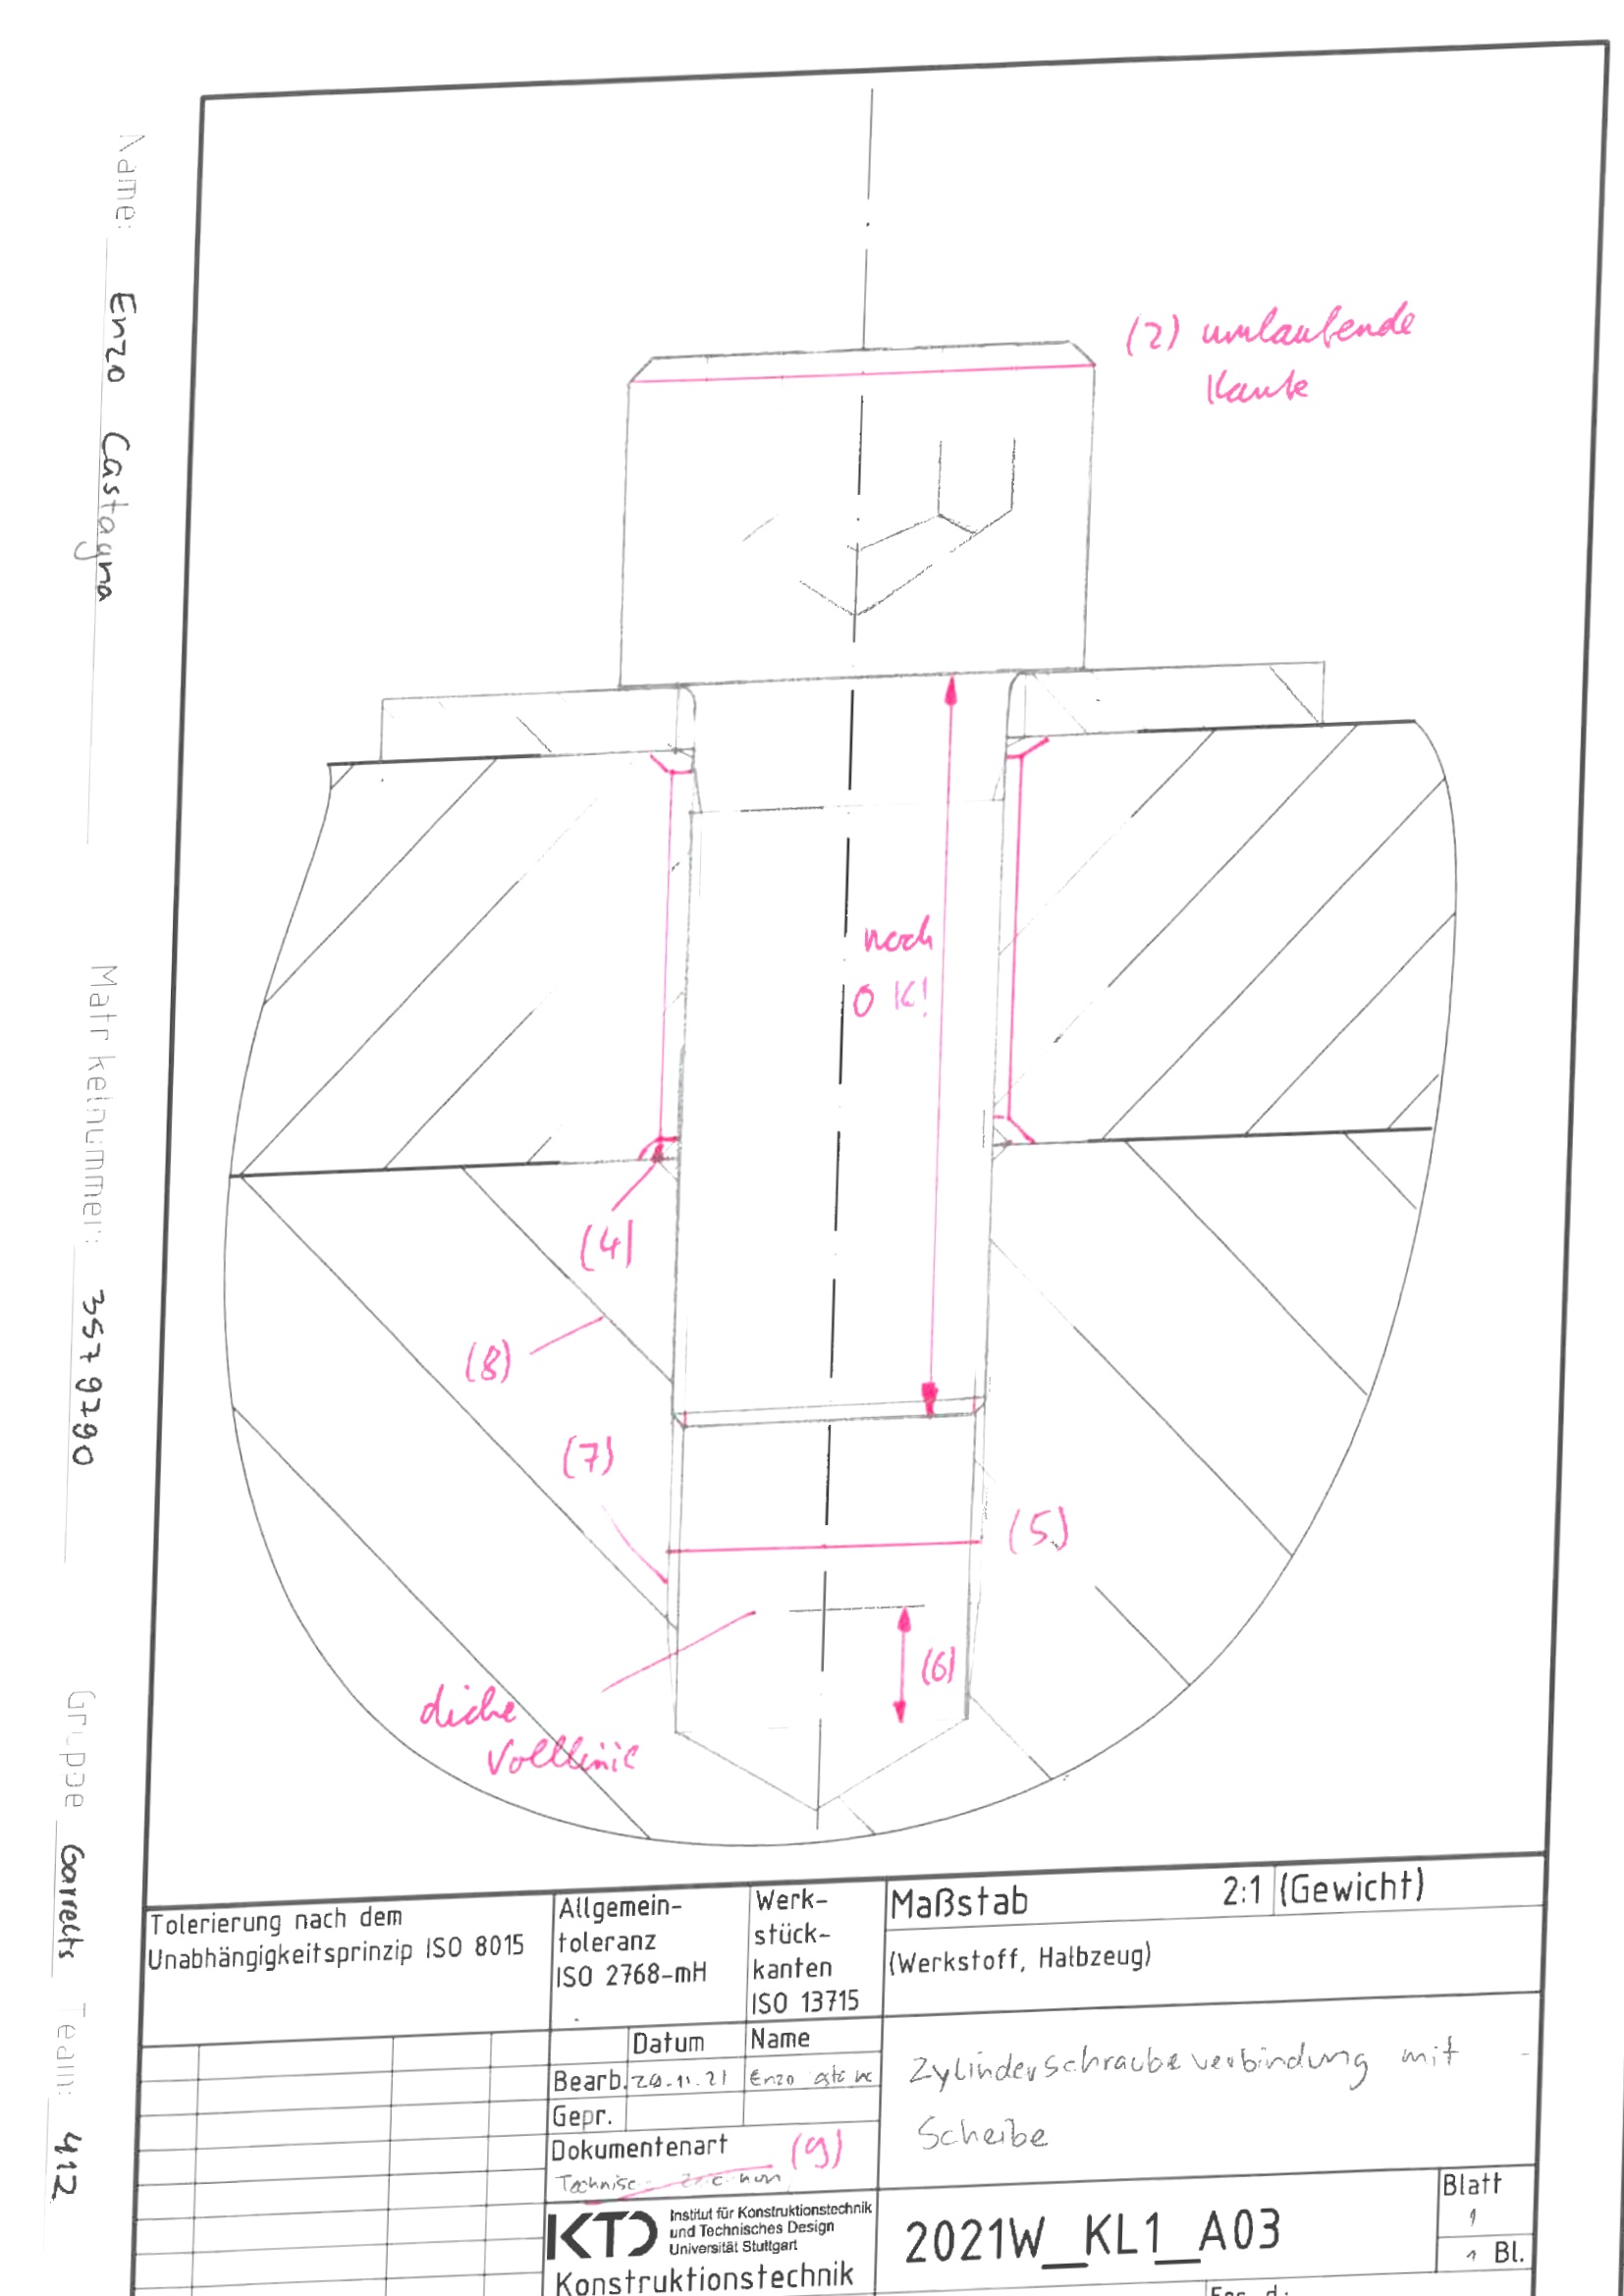 Name: Enzo Castagna
Matrikelnummer: 3579790
Gruppe Garrelts Team: 412
(2) umlaufende
Kante
noch
OK!
(4)
(8)
(7)
(5)
(6)
dicke
Volllinie
Tolerierung nach dem
Unabhängigkeitsprinzip ISO 8015
Allgemein-
toleranz
ISO 2768-mH
Werk-
stück-
kanten
ISO 13715
Maßstab 2:1 (Gewicht)
(Werkstoff, Halbzeug)
Datum Name
Bearb. 11.21 Enzo
Gepr.
Dokumentenart (9)
Zylinderschraubeverbindung mit
Scheibe
KTD
Institut für Konstruktionstechnik
und Technisches Design
Universität Stuttgart
Konstruktionstechnik
2021W_KL1_A03
Blatt
1
1 Bl.